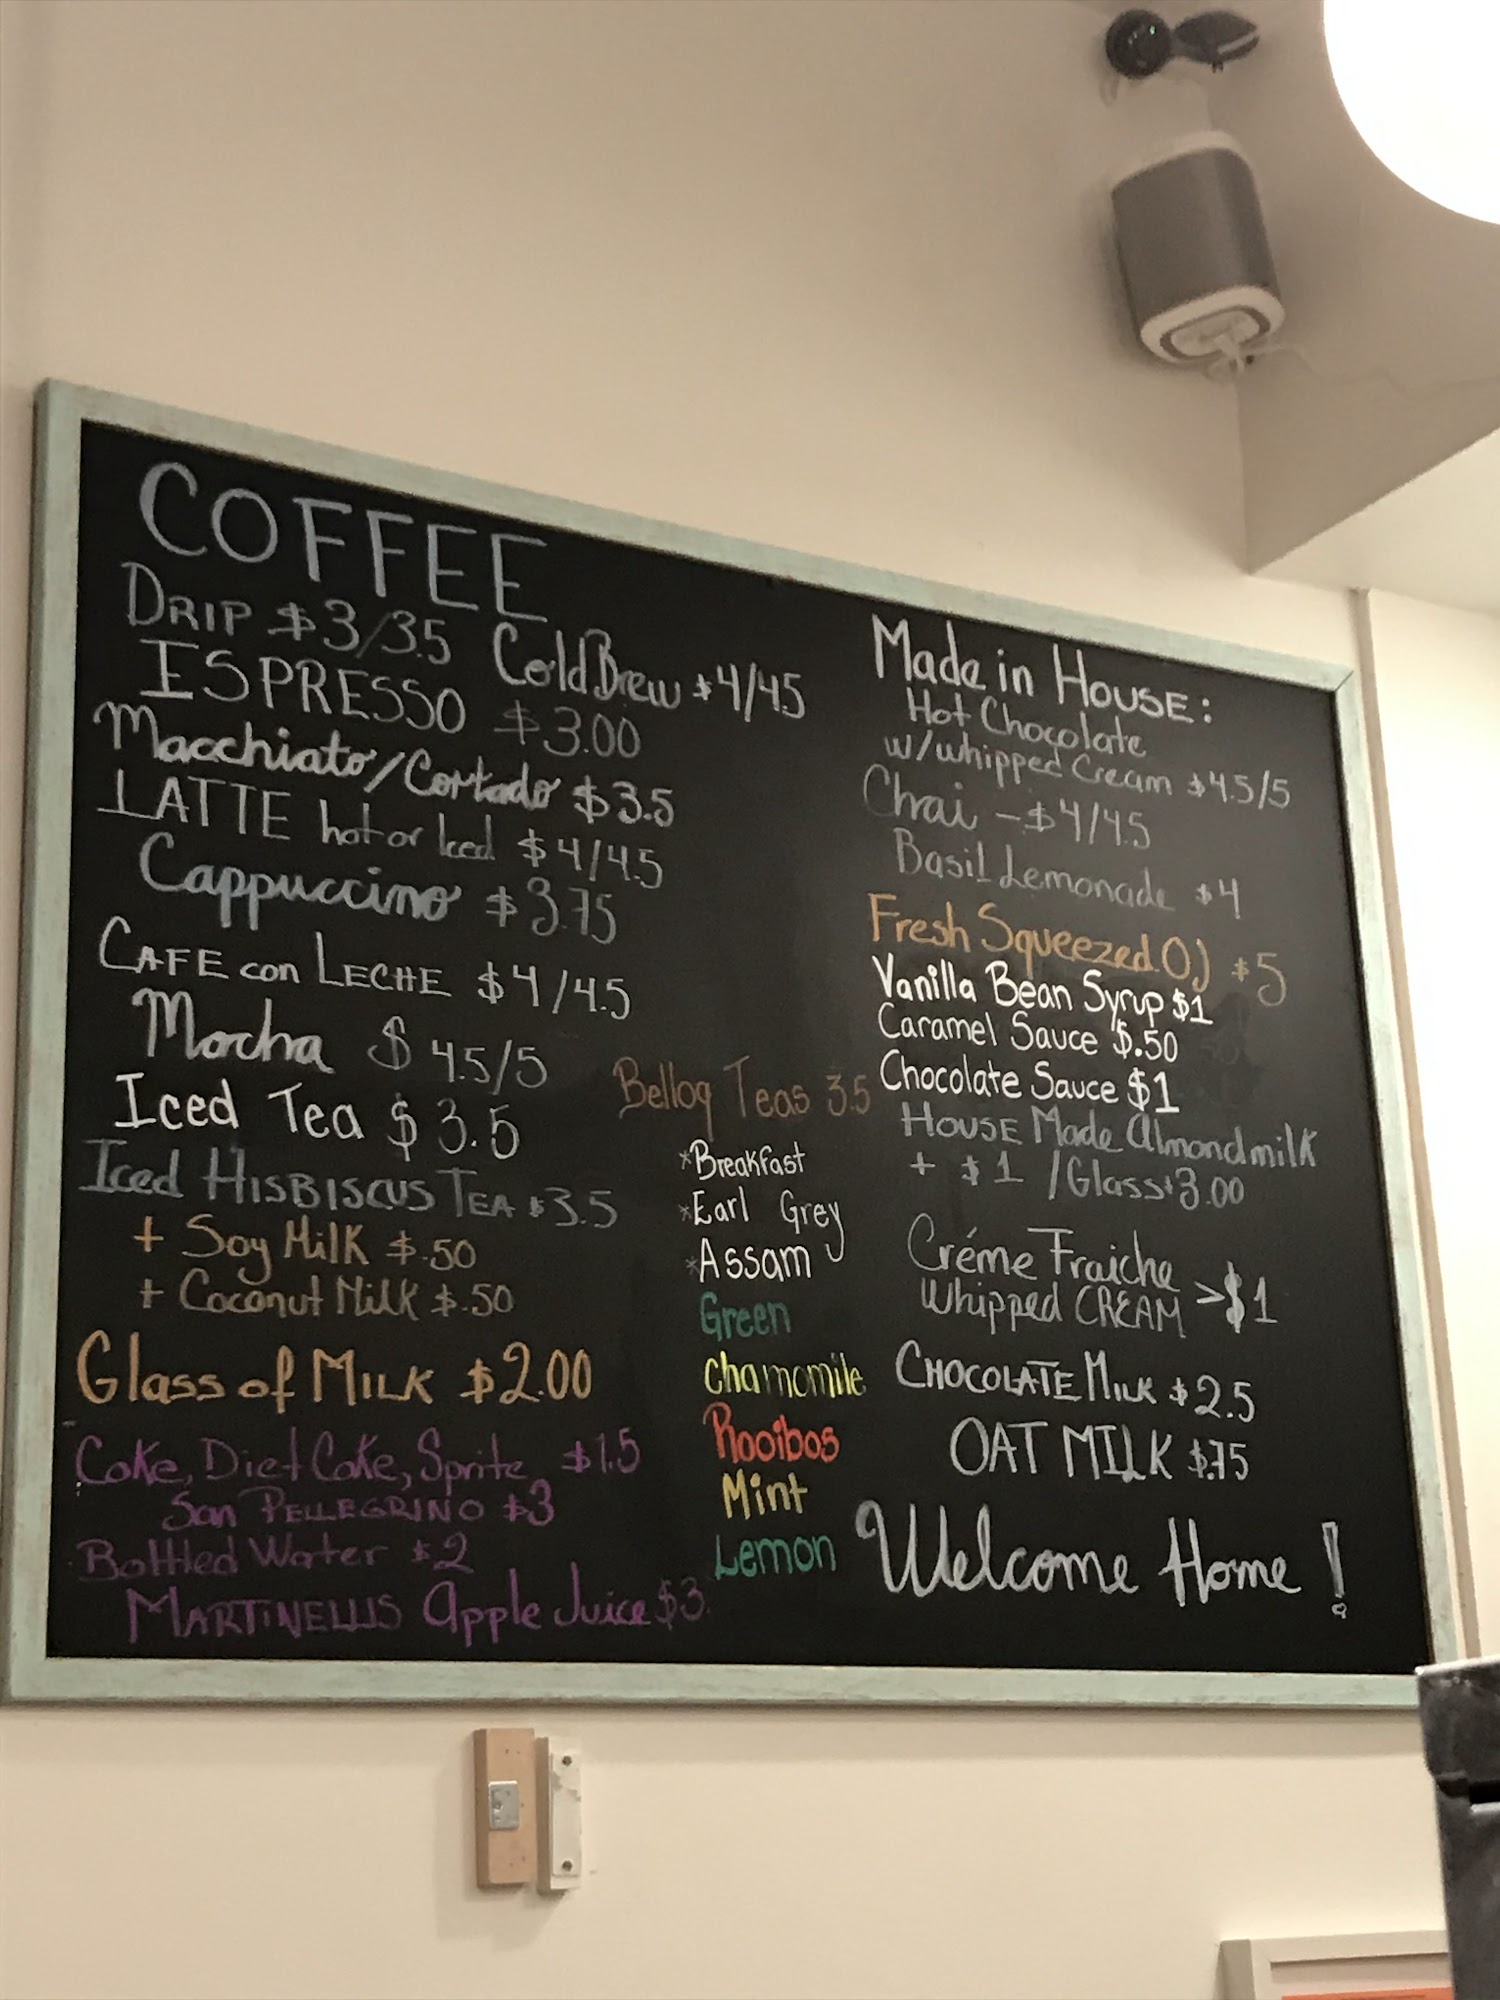 COFFEE
DRIP $3/3.5 Cold Brew $4/4.5
ESPRESSO $3.00
Macchiato/Cortado $3.5
LATTE hot or Iced $4/4.5
Cappuccino $3.75
CAFE con LECHE $4/4.5
Mocha $4.5/5
Iced Tea $3.5
Iced HISBISCUS TEA $3.5
+ Soy Milk $.50
+ Coconut Milk $.50
Glass of MILK $2.00
Coke, Diet Coke, Sprite $1.5
San PELLEGRINO $3
Bottled Water $2
MARTINELLIS Apple Juice $3
Bellog Teas 3.5
*Breakfast
*Earl Grey
*Assam
Green
Chamomile
Rooibos
Mint
Lemon
Made in HOUSE:
Hot Chocolate
w/whipped Cream $4.5/5
Chai - $4/4.5
Basil Lemonade $4
Fresh Squeezed OJ $5
Vanilla Bean Syrup $1
Caramel Sauce $.50
Chocolate Sauce $1
HOUSE Made Almondmilk
+ $1 /Glass $3.00
Créme Fraiche
Whipped CREAM >$1
CHOCOLATE MILK $2.5
OAT MILK $.75
Welcome Home!